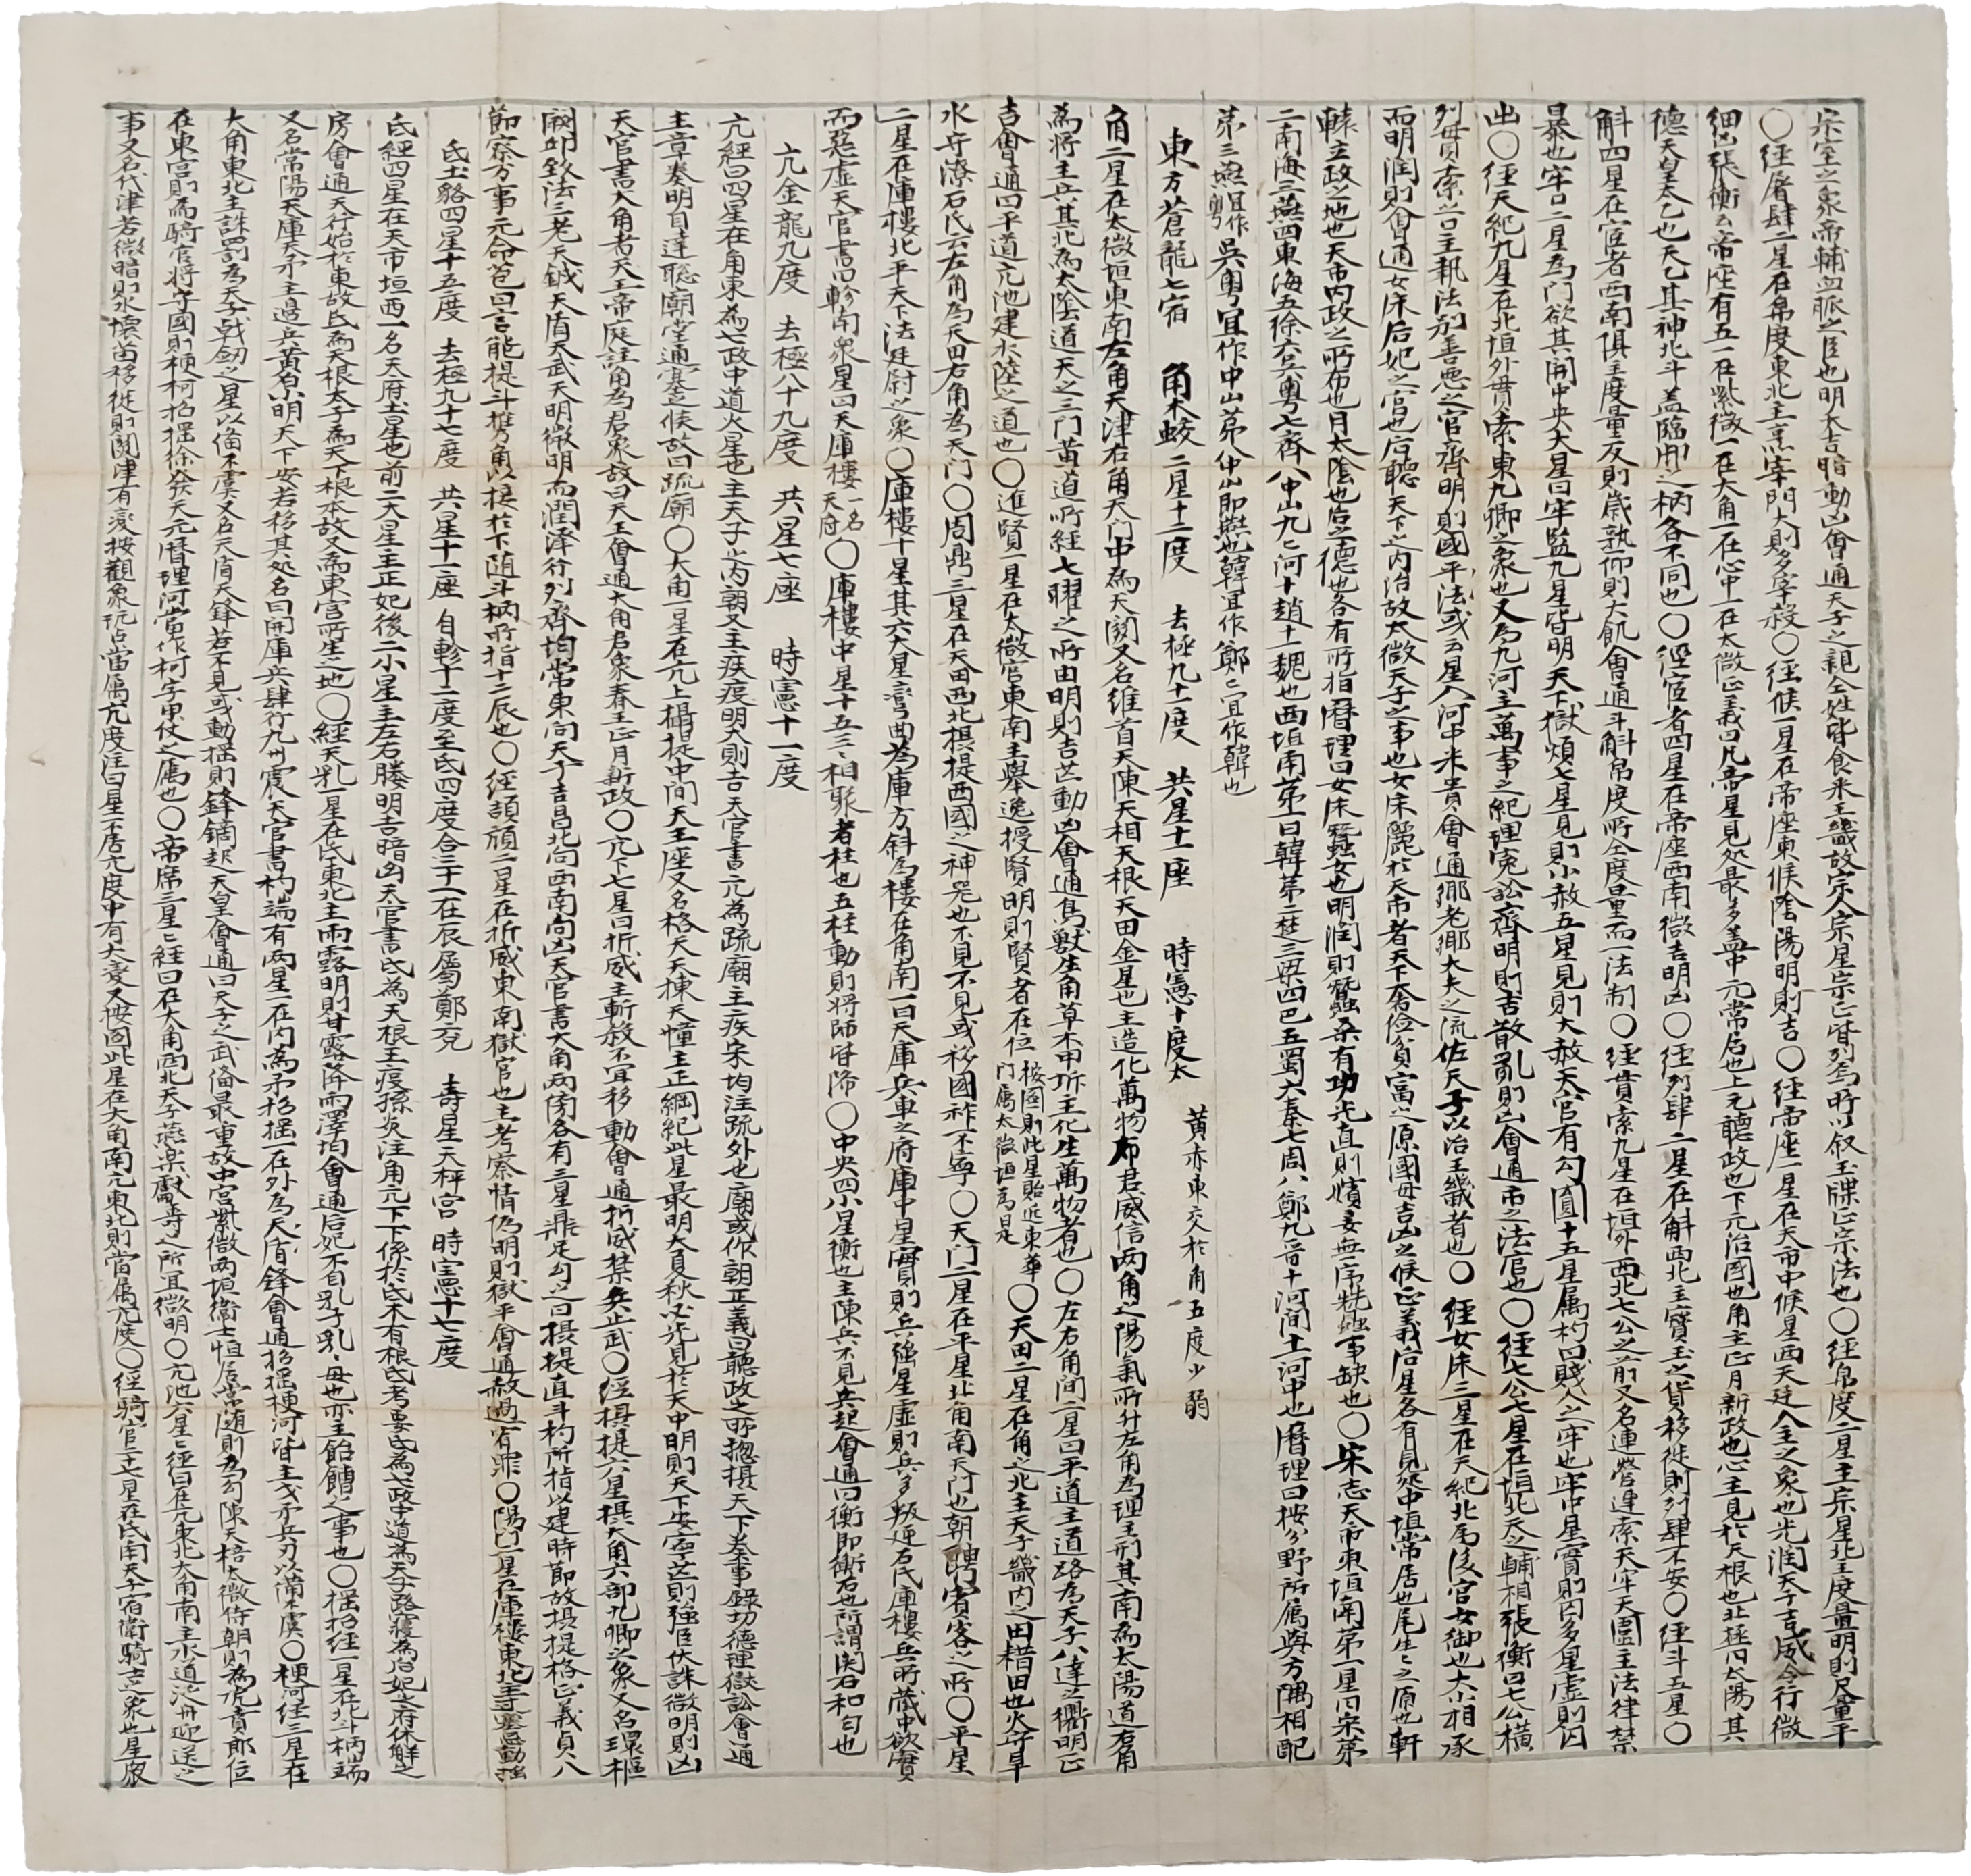 宗室之象帝輔血脈之臣也明大吉暗動凶會通天子之親全姓皆食釆王畿故宗人宗星宗正皆列焉所以叙玉牒正宗法也〇經帛度二星主宗星北主度量明則尺量平
〇經屠肆二星在帛度東北主烹宰門大則多宰殺〇經候一星在帝座東候陰陽明則吉〇經帝座一星在天市中候星西天廷人主之象也光潤天子吉威令行微
細凶張衡云帝座有五一在紫微一在大角一在心中一在太微正義曰凡帝星見処最多盖中元常居也上元聽政也下元治國也角主正月新政也心主見於天根也北極四太陽其
德天皇太乙也天乙其神北斗盖臨御之柄各不同也〇經宦者四星在帝座西南微吉明凶〇經列肆二星在斛西北主寶玉之貨移徙則列肆不安〇經斗五星〇
斛四星在宦者西南俱主度量反則歲熟仰則大飢會通斗斛帛度所仝度量而一法制〇經貫索九星在垣外西北七公之前又名連營連索天牢天圄主法律禁
暴也牢口一星為門欲其開中央大星曰牢監九星皆明天下獄煩七星見則小赦五星見則大赦天官有勾圓十五星属杓曰賤人之牢也牢中星實則囚多星虛則囚
出〇經天紀九星在北垣外貫索東九卿之象也又為九河主萬事之紀理寃訟齊明則吉散亂則凶會通市之法官也〇經七公七星在垣北天之輔相張衡曰七公橫
列貫索之口主執法別善惡之官齊明則國平法或云星入河中米貴會通鄉老鄉大夫之流佐天子以治王畿者也〇經女床三星在天紀北為後宮女御也大小相承
而明潤則會通女床后妃之宮也后聽天下之內治故太微天子之事也女床麗於天市者天下奢儉貧富之原國母吉凶之候正義后星各有見処中垣常居也尾生之原也軒
轅立政之地也天市內政之所布也月太陰也后之德也各有所指曆理曰女床蠶女也明潤則蠶桑有功光直則嬪妾無序桃蟲事缺也〇宋志天市東垣南第一星曰宋第
二南海三燕四東海五徐六吳粵七齊八中山九九河十趙十一魏也西垣南第一曰韓第二楚三梁四巴五蜀六秦七周八鄭九晉十河間十一河中也曆理曰按分野所属與方隅相配
第三燕宜作粤吳粵宜作中山第八中山即燕也韓宜作鄭鄭宜作韓也
東方蒼龍七宿 角木蛟 二星十二度 去極九十一度 共星十一座 時憲十度太 黃赤東交於角五度少弱
角二星在太微垣東南左角天津右角天门中為天關又名維首天陳天相天根天田金星也主造化萬物布君威信两角之陽氣所升左角為理主刑其南為太陽道右角
為將主兵其北為太陰道天之三门黃道所經七曜之所由明則吉芒動凶會通鳥獸生角草木甲坼主化生萬物者也〇左右角间二星曰平道主道路為天子八達之衢明正
吉會通四平道亢池建水陸之道也〇進賢一星在太微宮東南主舉逸授賢明則賢者在位按圖則此星貼近東華门属太微垣為是〇天田二星在角之北主天子畿內之田耤田也火守旱
水守潦石氏云左角為天田右角為天门〇周鼎三星在天田西北摂提西國之神器也不見不見或移國祚不寧〇天门二星在平星北角南天门也朝聘賓客之所〇平星
二星在庫樓北平天下法廷尉之象〇庫樓十星其六大星弯曲為庫方斜為樓在角南一曰天庫兵車之府庫中星實則兵强星虛則兵多叛逆石氏庫樓兵所藏中欲實
而惡虛天官書曰軫南衆星曰天庫樓一名天府〇庫樓中星十五三三相聚者柱也五柱動則將師皆㱕〇中央四小星衡也主陳兵不見兵起會通曰衡即衡石也所謂関石和勻也
亢金龍九度 去極八十九度 共星七座 時憲十一度
亢經曰四星在角東為七政中道火星也主天子之內朝又主疾疫明大則吉天官書亢為疏廟主疾宋均注疏外也廟或作朝正義曰聽政之所摠摂天下奏事錄功德理獄訟會通
主章奏明目達聰廟堂通塞之候故曰疏廟〇大角一星在亢上摂提中间天王座又名格天天棟天憧主正綱紀此星最明大夏秋必先見於天中明則天下安寧芒則强臣伏誅微明則凶
天官書大角者天王帝庭註角為君象故曰天王會通大角君象春王正月新政〇亢下七星曰折威主斬殺不宜移動會通折威禁兵止武〇經摂提六星摂大角六部九卿之象又名環樞
闕邱致法三老天鉞天盾天武天明微明而潤澤行列齊均常東向天子吉昌北向西南向凶天官書大角两傍各有三星鼎足勾之曰摂提直斗杓所指以建時節故摂提格正義貞八
節察万事元命苞曰言能提斗携角以接於下隨斗柄所指十二辰也〇經頡頏二星在折威東南獄官也主考察情偽明則獄平會通赦過宥罪〇陽门二星在庫樓東北主寒塞動摇
氐土貉四星十五度 去極九十七度 共星十一座 自軫十二度至氐四度合三十一在辰属鄭兖 壽星天秤宮 時憲十七度
氐經四星在天市垣西一名天府土星也前二大星主正妃後二小星主左右媵明吉暗凶天官書氐為天根主疫孫炎注角亢下下係於氐木有根氐考要氐為七政中道為天子路寢為后妃之府休解之
房會通天行始於東故氐為天根太子為天下根本故又為東宮所生之地〇經天乳一星在氐東北主雨露明則甘露降雨澤均會通后妃不自乳子乳母也亦主飴餹之事也〇摇招經一星在北斗柄端
又名常陽天庫天矛主邊兵黄白明天下安若移其処名曰開庫兵肆行九州震天官書杓端有两星一在內為矛招摇一在外為天盾鋒會通招摇梗河皆主戈矛兵刃以備不虞〇梗河經三星在
大角東北主誅罰為天子戟劒之星以俻不虞又名天盾天鋒若不見或動摇則鋒鏑起天皇會通曰天子之武俻最重故中宮紫微两垣衞士恒居常随則為勾陳天棓太微侍朝則為虎賁郎位
在東宮則為騎官將守國則梗河招摇徐發天元曆理河當作柯字甲仗之属也〇帝席三星三經曰在大角西北天子燕樂獻壽之所宜微明〇亢池六星六經曰在亢東北大角南主水道渡舟迎送之
事又名代津若微暗則水懷苗移徙則関津有变按觀象玩占當属亢度注曰星不居亢度中有大変又按圖此星在大角南亢東北則當属亢度〇經騎官二十七星在氐南天子宿衞騎士之象也星衆